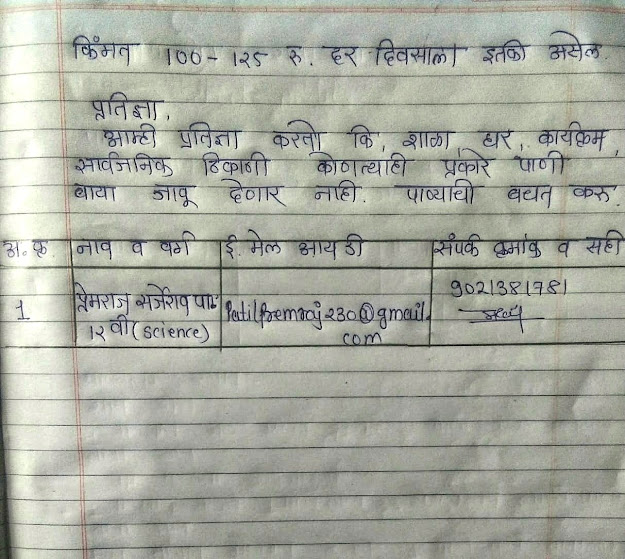 किंमत 100 - 125 रु. हर दिवसाला इतकी असेल.
प्रतिज्ञा,
आम्ही प्रतिज्ञा करतो कि, शाळा, घर, कार्यक्रम,
सार्वजनिक ठिकाणी कोणत्याही प्रकारे पाणी
वाया जावू देणार नाही. पाण्याची बचत करु.
अ.क्र. नाव व वर्ग ई. मेल आय डी संपर्क क्रमांक व सही
1 प्रेमराज सर्जेराव पा. PatilPremraj230@gmail. 9021381781
12 वी (science) com